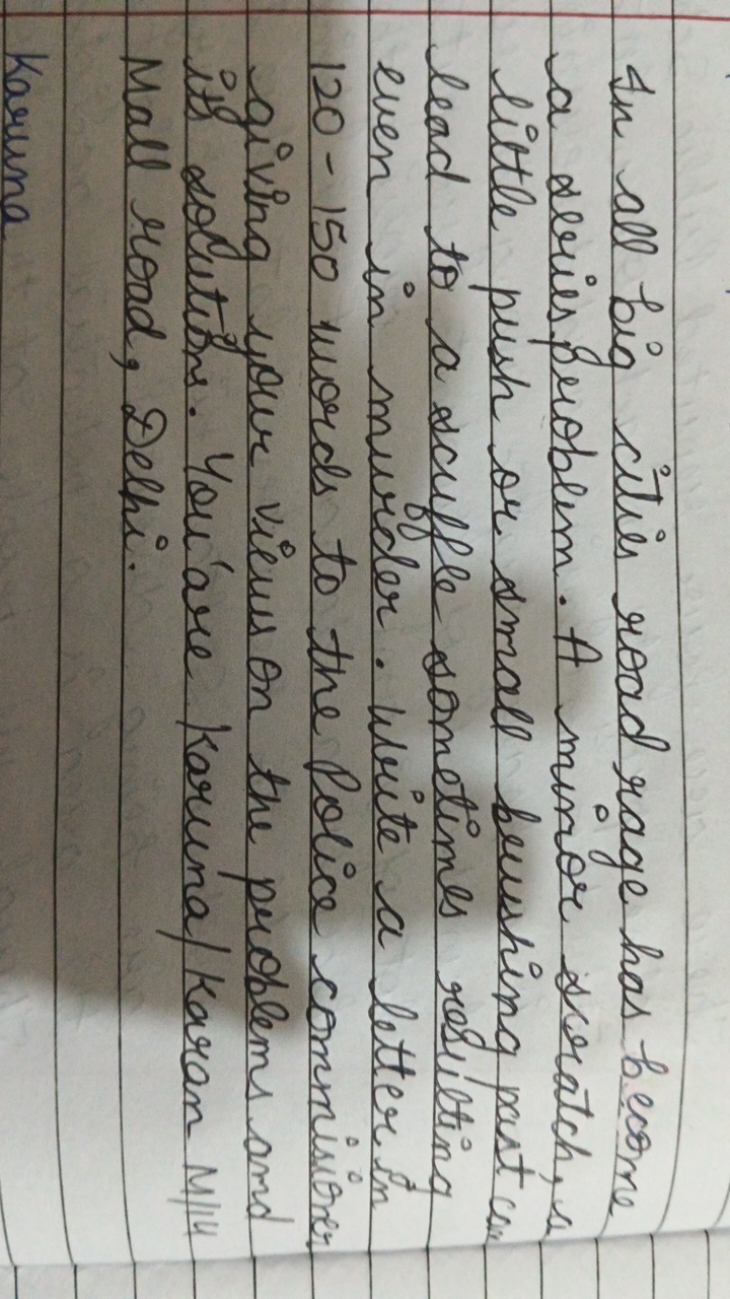 In all big cities road rage has become
a series problem. A minor scratch, a
little push or small brushing past can
lead to a scuffle sometimes resulting
even in murder. Write a letter in
120-150 words to the Police commisioner
giving your views on the problems and
its solutions. You are Karuna/Karan M/114
Mall road, Delhi.
Karuna